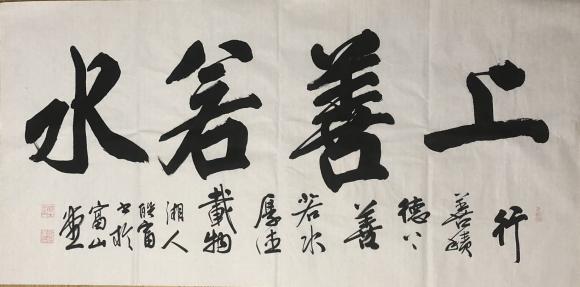 上善若水
行
善積
德上
善
若水
厚德
載物
湘人
书於
富山